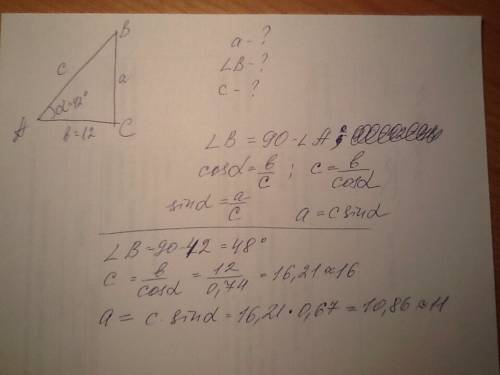 B
c
a
α=42°
A
b=12
C
a - ?
∠B - ?
c - ?
∠B = 90 - ∠A;
cosα = b/c ; c = b/cosα
sinα = a/c a = c sinα
∠B = 90-42 = 48°
c = b/cosα = 12/0,74 = 16,21 ≈ 16
a = c · sinα = 16,21 · 0,67 = 10,86 ≈ 11